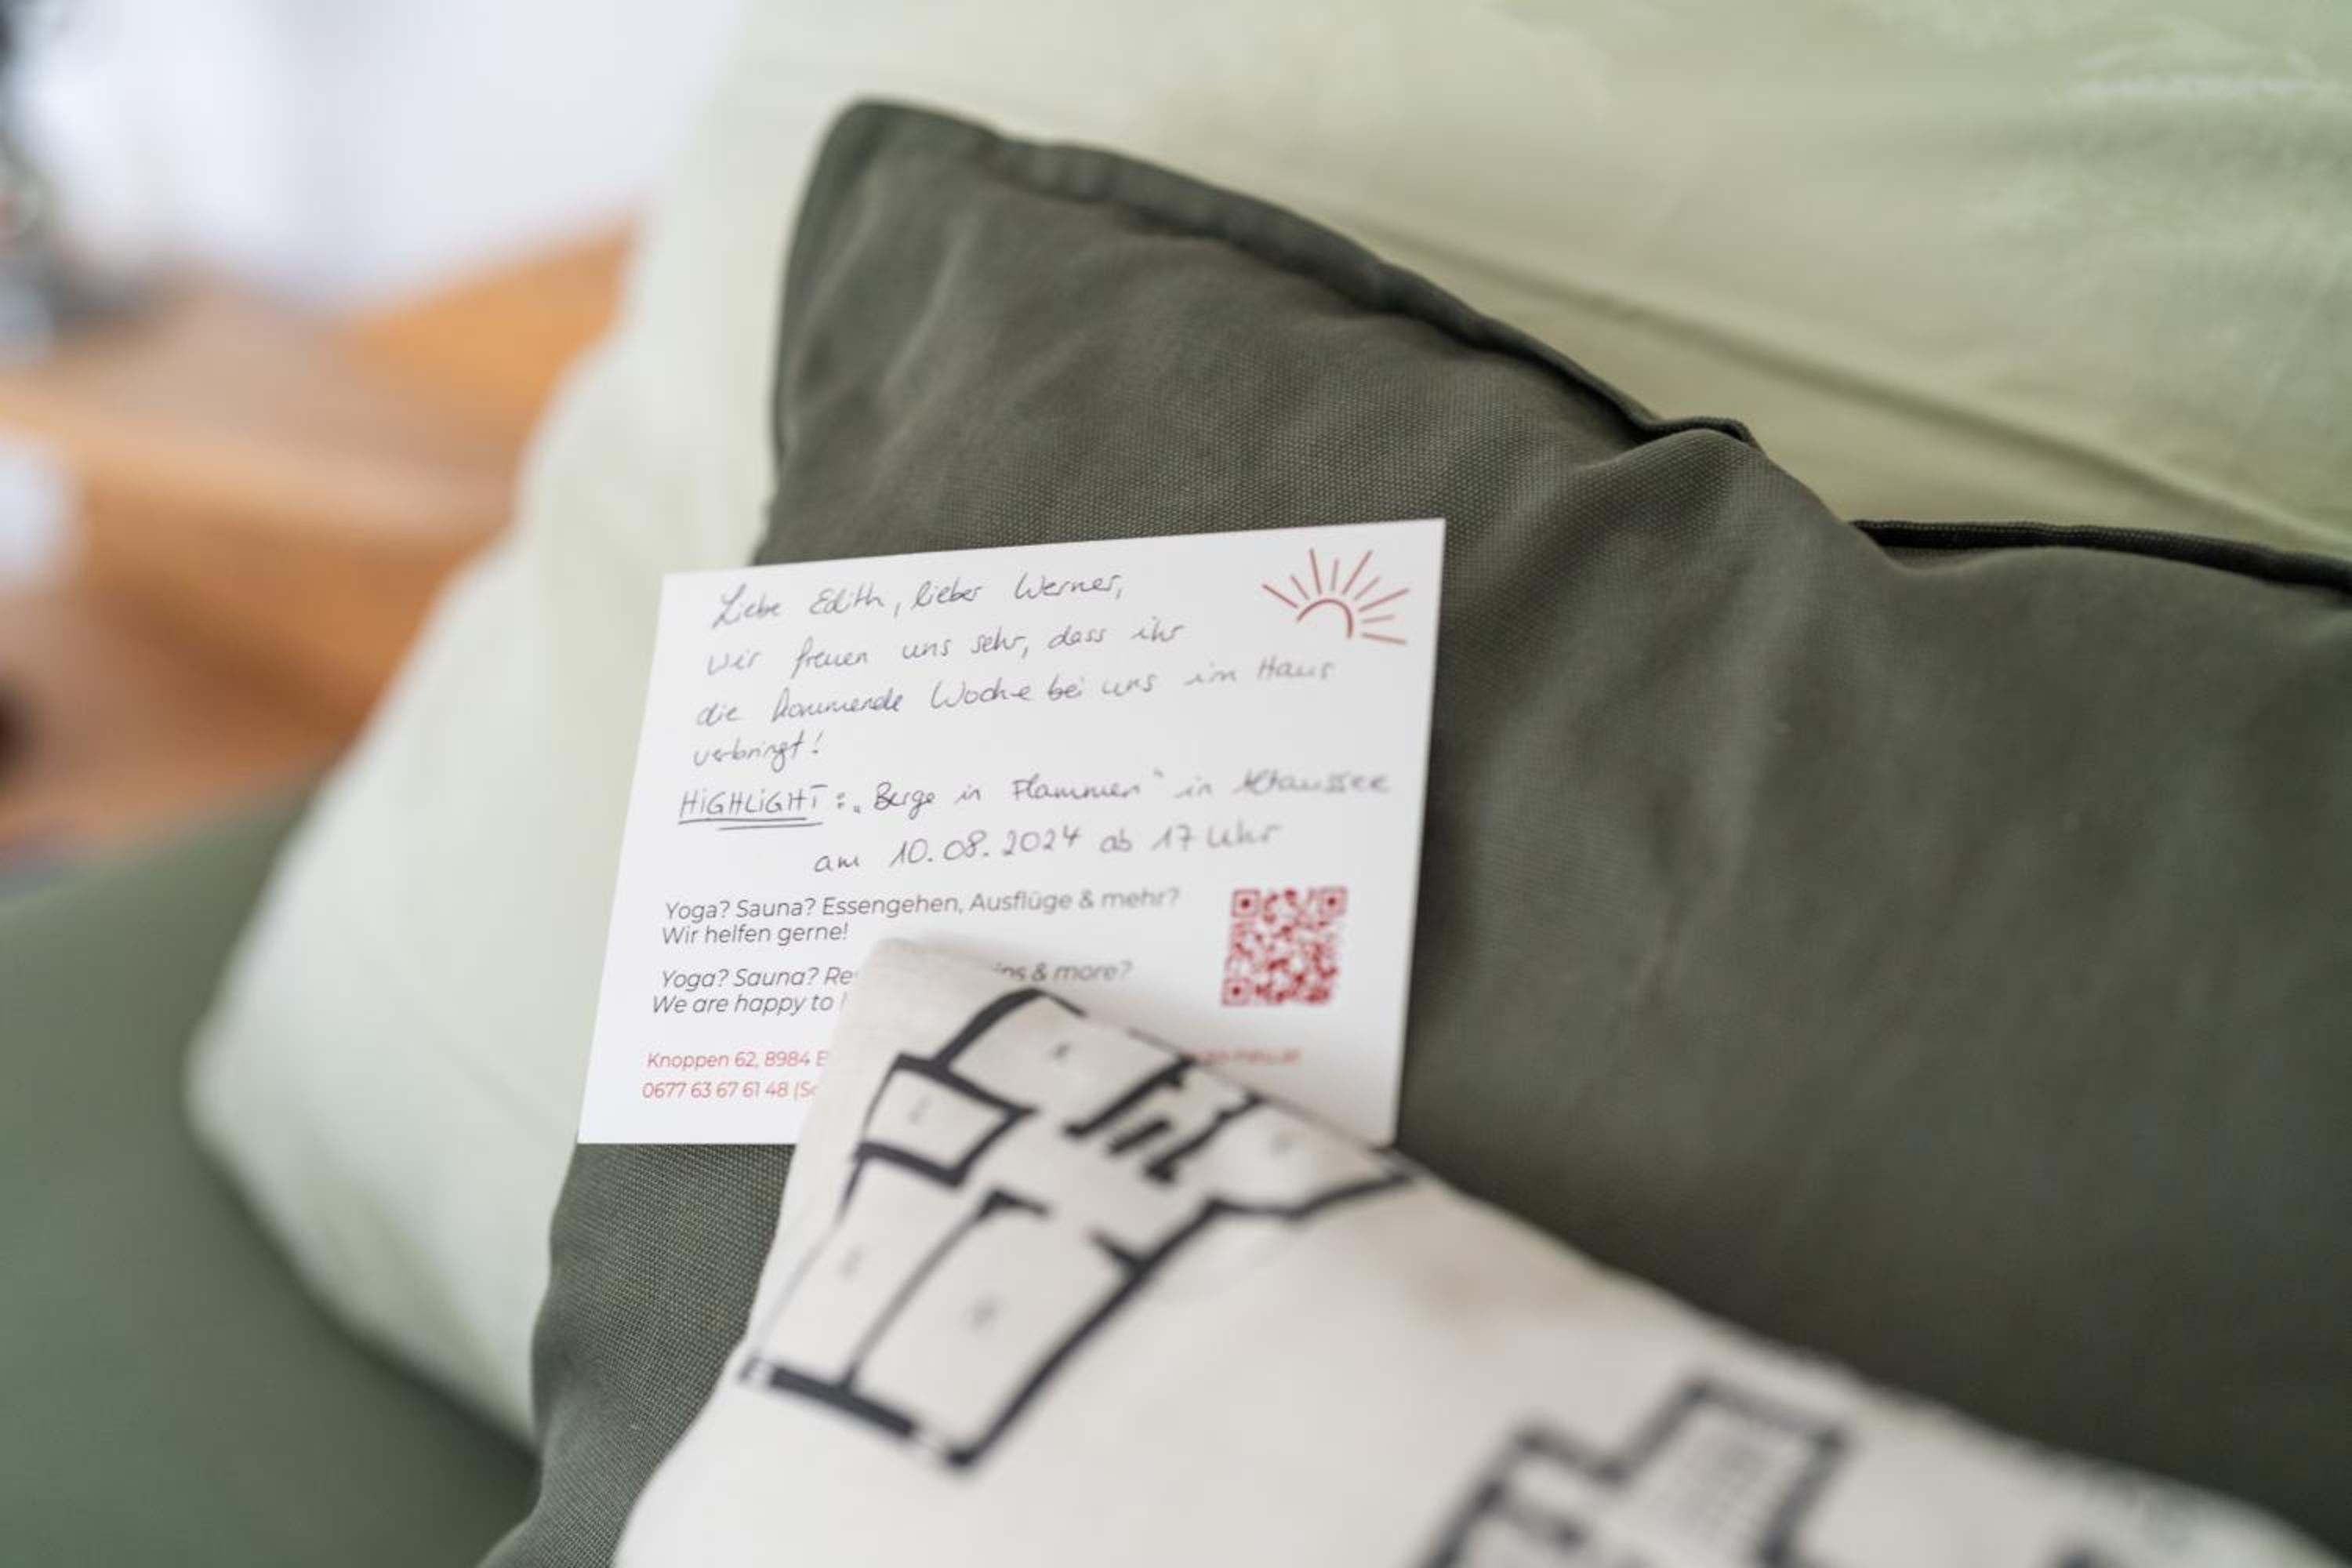 Liebe Edith, lieber Werner,
wir freuen uns sehr, dass ihr
die kommende Woche bei uns im Haus
verbringt!
HIGHLIGHT: „Berge in Flammen" in Altaussee
am 10.08.2024 ab 17 Uhr
Yoga? Sauna? Essengehen, Ausflüge & mehr?
Wir helfen gerne!
Yoga? Sauna? & more?
We are happy to
Knoppen 62, 8984
0677 63 67 61 48